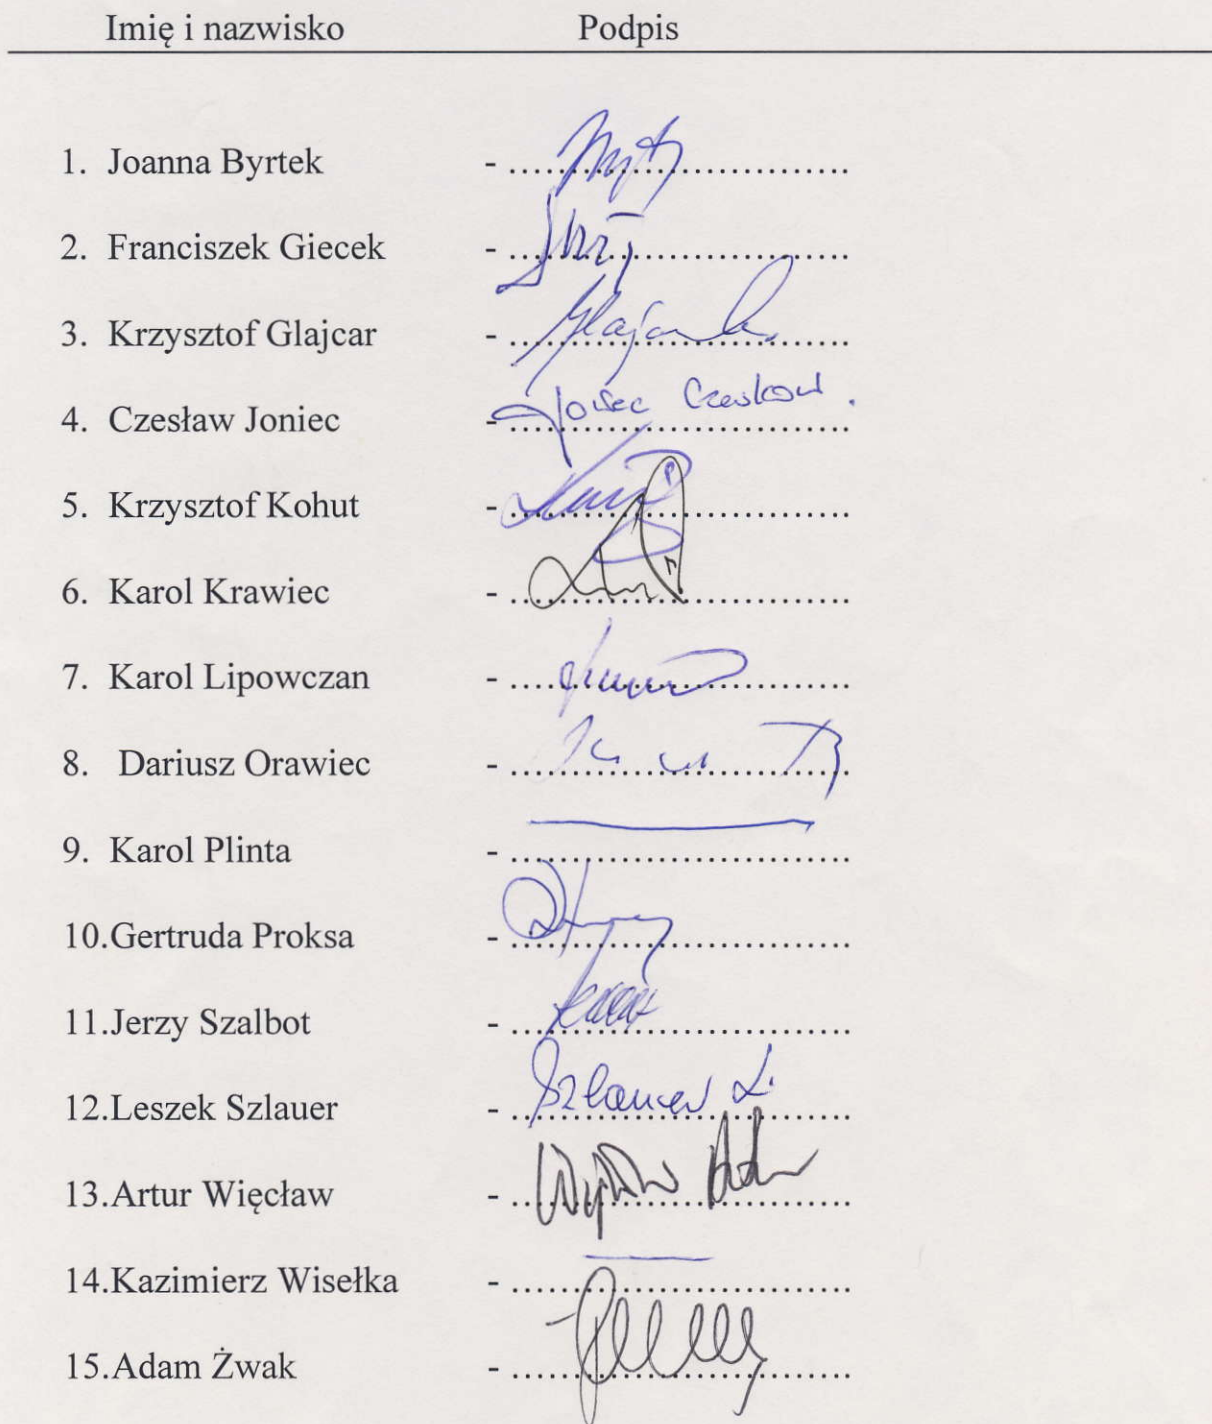 Imię i nazwisko Podpis
1. Joanna Byrtek - ..............................
2. Franciszek Giecek - ..............................
3. Krzysztof Glajcar - ..............................
4. Czesław Joniec - .............................. Joniec Czesław
5. Krzysztof Kohut - ..............................
6. Karol Krawiec - ..............................
7. Karol Lipowczan - ..............................
8. Dariusz Orawiec - ..............................
9. Karol Plinta - ..............................
10.Gertruda Proksa - ..............................
11.Jerzy Szalbot - ..............................
12.Leszek Szlauer - .............................. Szlauer L.
13.Artur Więcław - ..............................
14.Kazimierz Wisełka - ..............................
15.Adam Żwak - ..............................